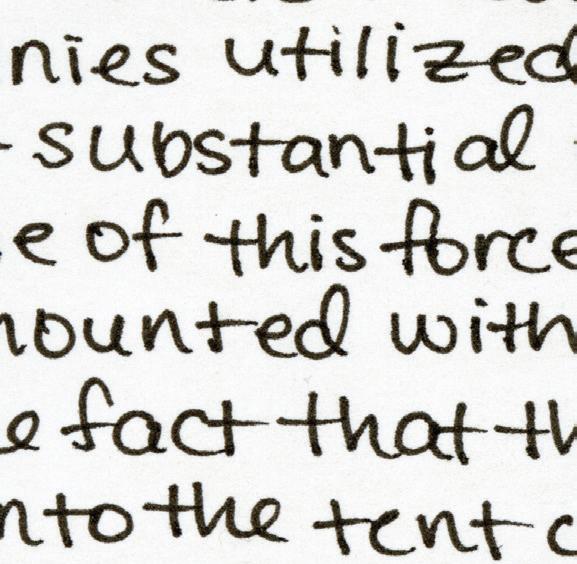 nies utilized
substantial
e of this force
mounted with
e fact that th
nto the tent c